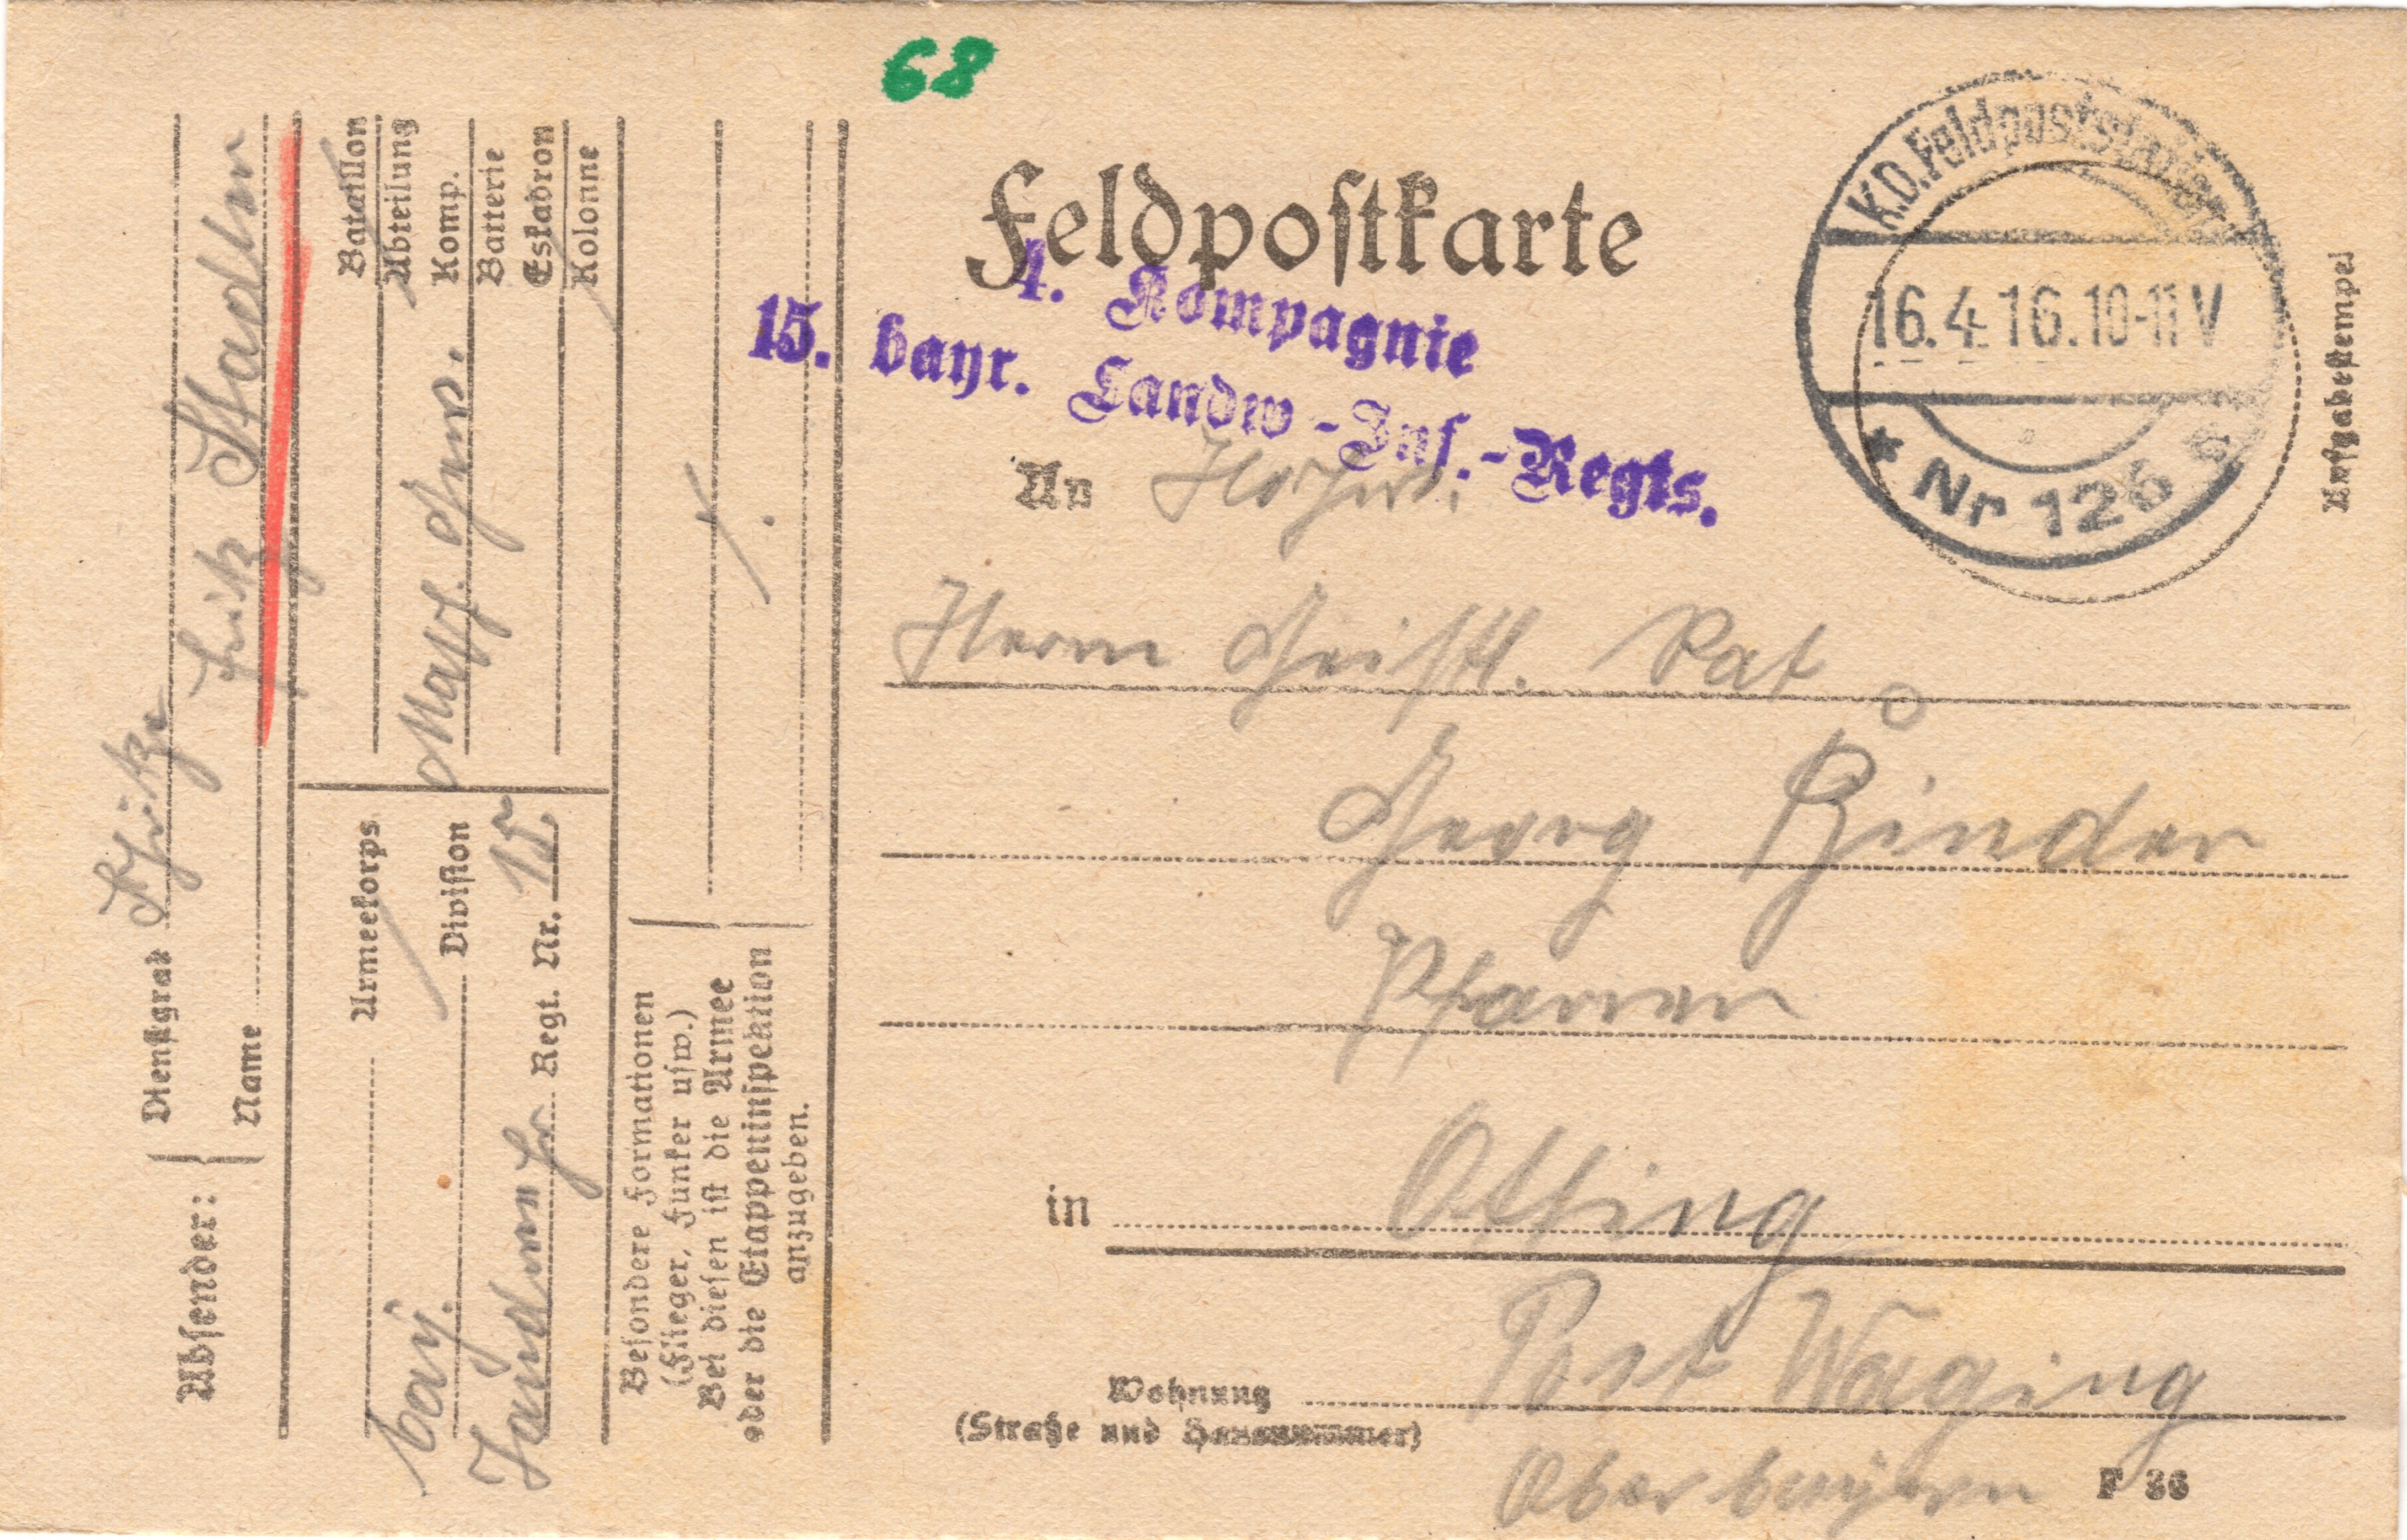 68
Feldpostkarte
4. Kompagnie
15. bayr. Landw.-Inf.-Regts.
K.D. Feldpoststation
16.4.16.10-11V
* Nr 126 *
Aufgabestempel
An
Herrn Geistl. Rat
Georg Binder
Pfarrer
in Otting
Post Waging
Wohnung
(Straße und Hausnummer)
Oberbayern
F 36
Absender:
Dienstgrad
Name Fritz Stadler
Armeekorps
Division
bay.
Landwehr Regt. Nr. 15.
Bataillon
Abteilung
Komp.
Batterie
Eskadron
Kolonne
Masch. Gew.
Besondere Formationen
(Flieger, Funker usw.)
Bei diesen ist die Armee
oder die Etappeninspektion
anzugeben.